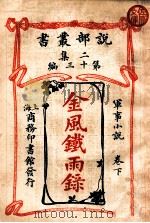 說部叢書
二集
第十三編
軍事小說 卷下
金風鐵雨錄
上海商務印書館發行